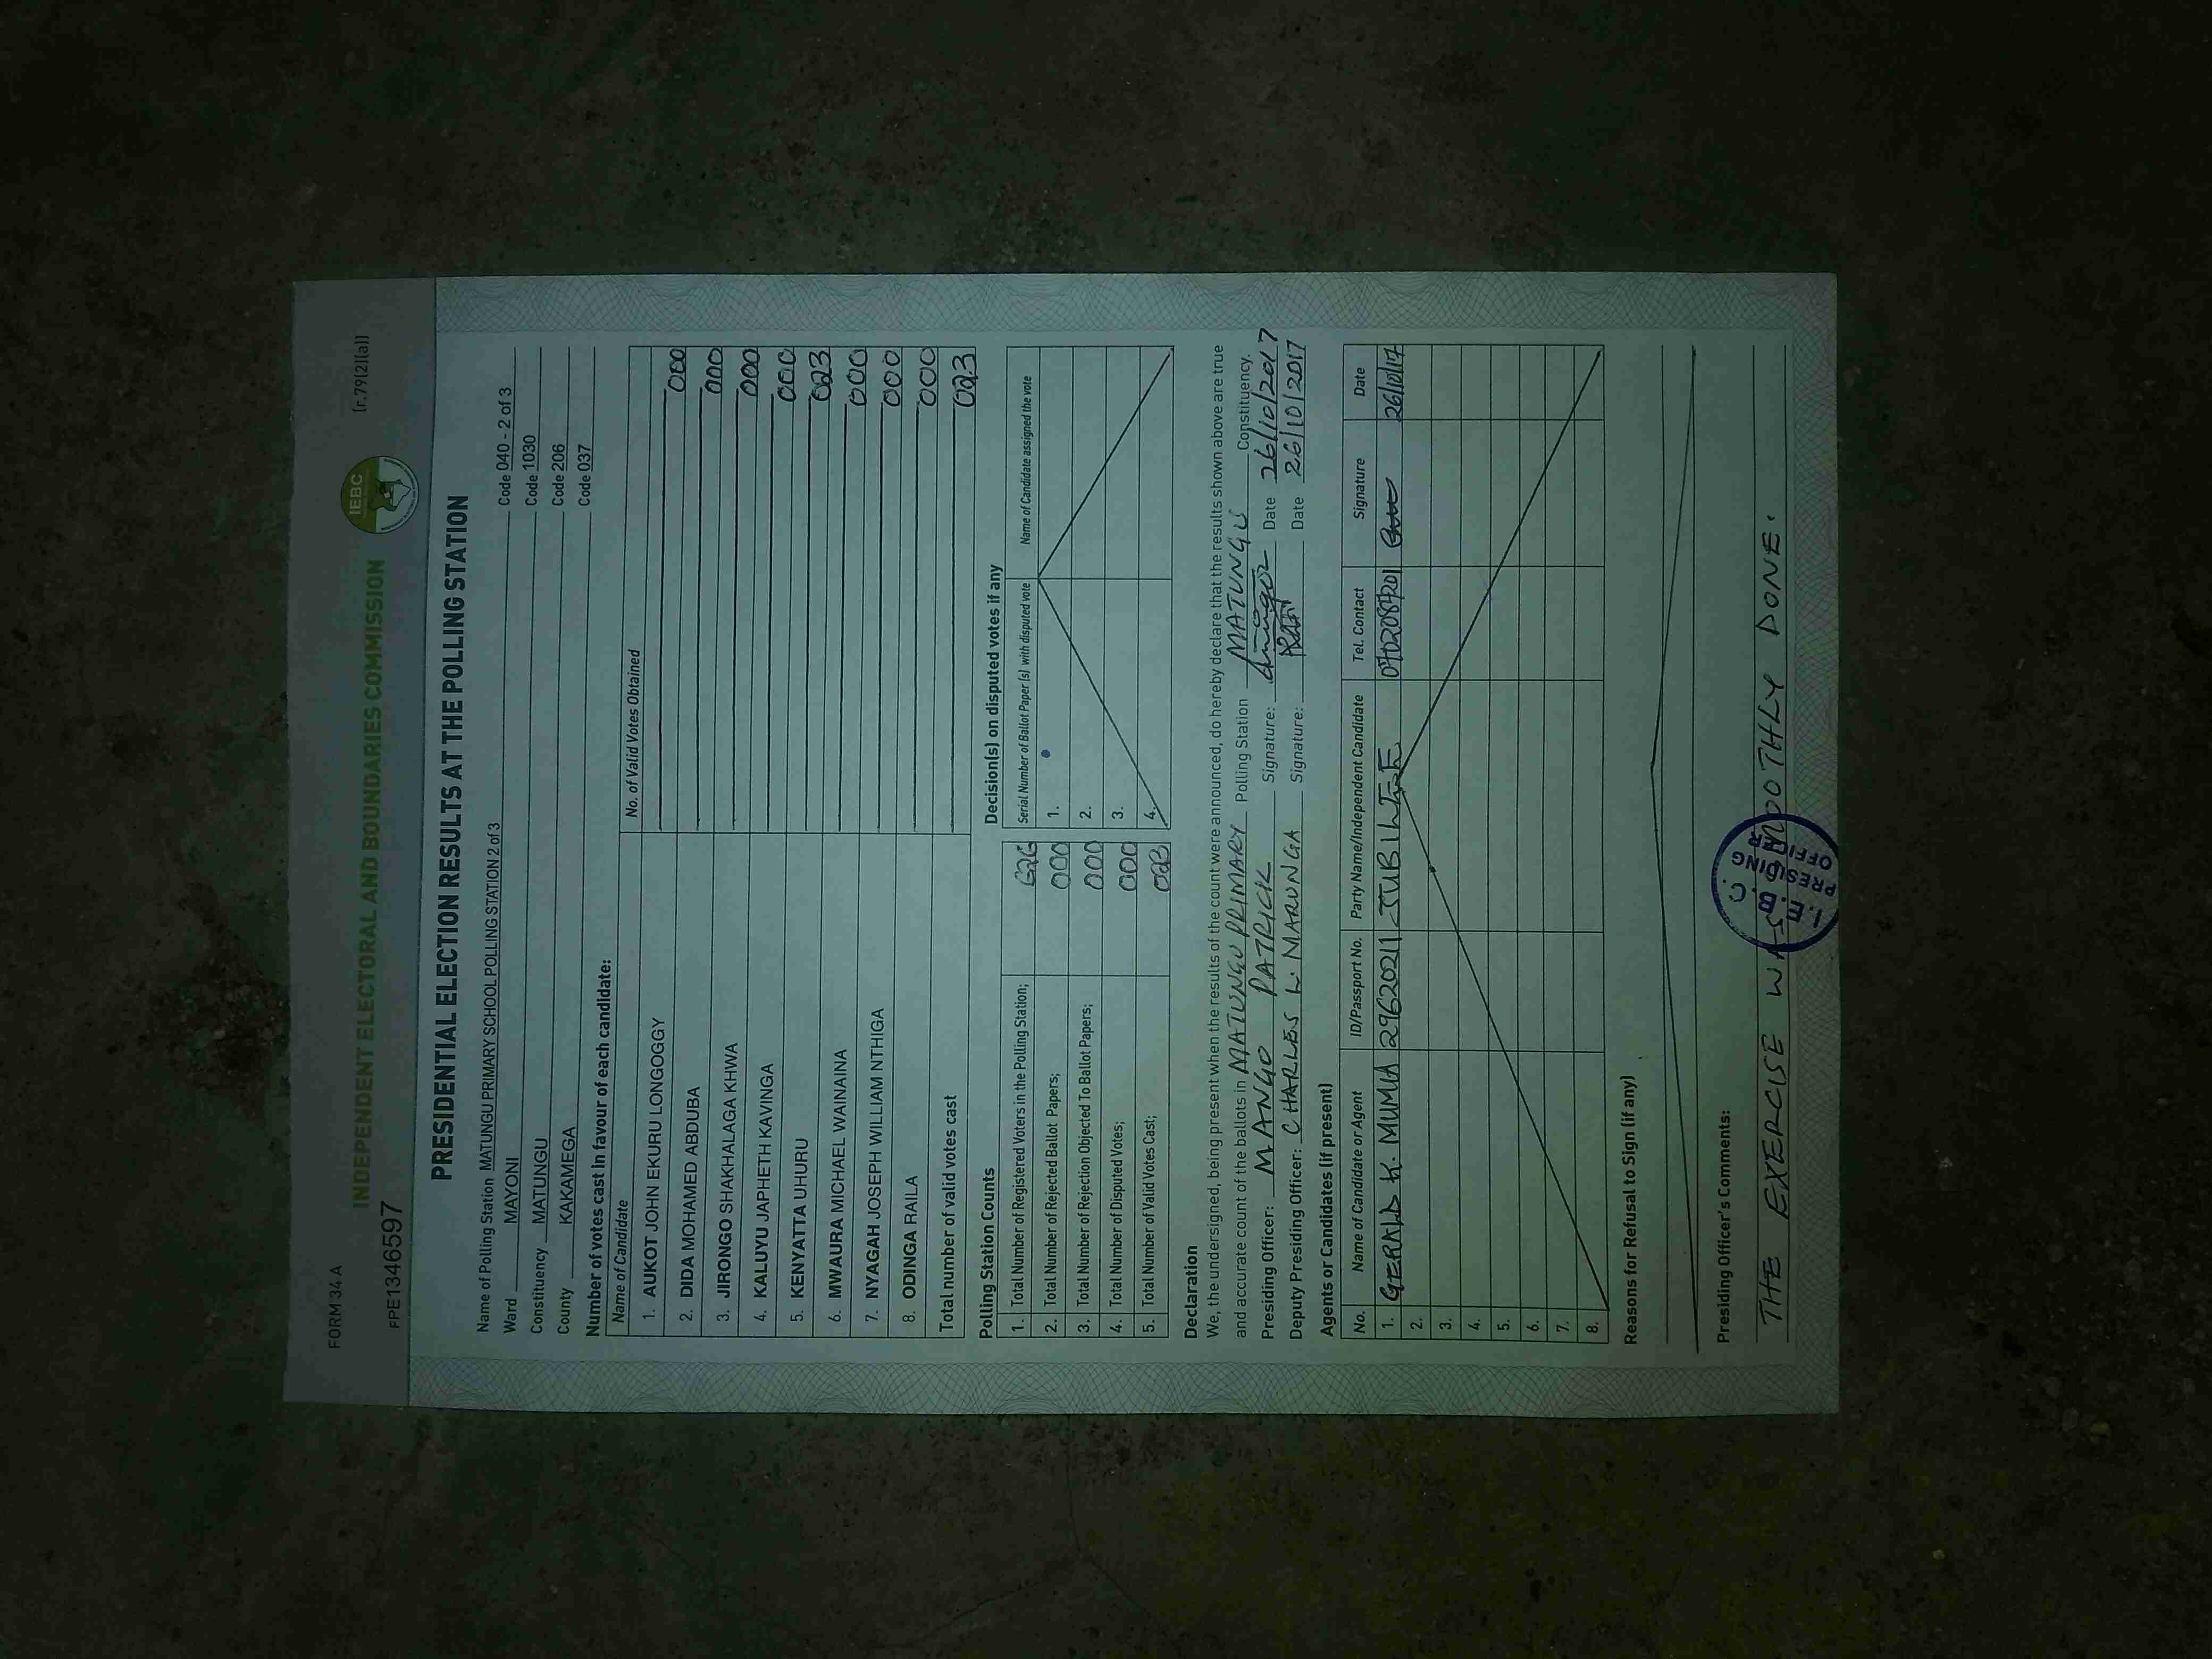 FORM 34 A
[r.79(2)(a)]
IEBC
INDEPENDENT ELECTORAL AND BOUNDARIES COMMISSION
FPE1346597
PRESIDENTIAL ELECTION RESULTS AT THE POLLING STATION
Name of Polling Station MATUNGU PRIMARY SCHOOL POLLING STATION 2 of 3 Code 040 - 2 of 3
Ward MAYONI Code 1030
Constituency MATUNGU Code 206
County KAKAMEGA Code 037
Number of votes cast in favour of each candidate:
Name of Candidate No. of Valid Votes Obtained
1. AUKOT JOHN EKURU LONGOGGY 000
2. DIDA MOHAMED ABDUBA 000
3. JIRONGO SHAKHALAGA KHWA 000
4. KALUYU JAPHETH KAVINGA 000
5. KENYATTA UHURU 023
6. MWAURA MICHAEL WAINAINA 000
7. NYAGAH JOSEPH WILLIAM NTHIGA 000
8. ODINGA RAILA 000
Total number of valid votes cast 023
Polling Station Counts
1. Total Number of Registered Voters in the Polling Station;
2. Total Number of Rejected Ballot Papers; 000
3. Total Number of Rejection Objected To Ballot Papers; 000
4. Total Number of Disputed Votes; 000
5. Total Number of Valid Votes Cast; 023
Decision(s) on disputed votes if any
Serial Number of Ballot Paper (s) with disputed vote Name of Candidate assigned the vote
1.
2.
3.
4.
Declaration
We, the undersigned, being present when the results of the count were announced, do hereby declare that the results shown above are true
and accurate count of the ballots in MATUNGU PRIMARY Polling Station MATUNGU Constituency.
Presiding Officer: MANGO PATRICK Signature: Date 26/10/2017
Deputy Presiding Officer: CHARLES W. MARUNGA Signature: Date 26/10/2017
Agents or Candidates (if present)
No. Name of Candidate or Agent ID/Passport No. Party Name/Independent Candidate Tel. Contact Signature Date
1. GERALD K. MUMIA 29620211 JUBILEE 26/10/17
2.
3.
4.
5.
6.
7.
8.
Reasons for Refusal to Sign (if any)
Presiding Officer's Comments:
THE EXERCISE WAS SMOOTHLY DONE.
I.E.B.C.
PRESIDING
OFFICER